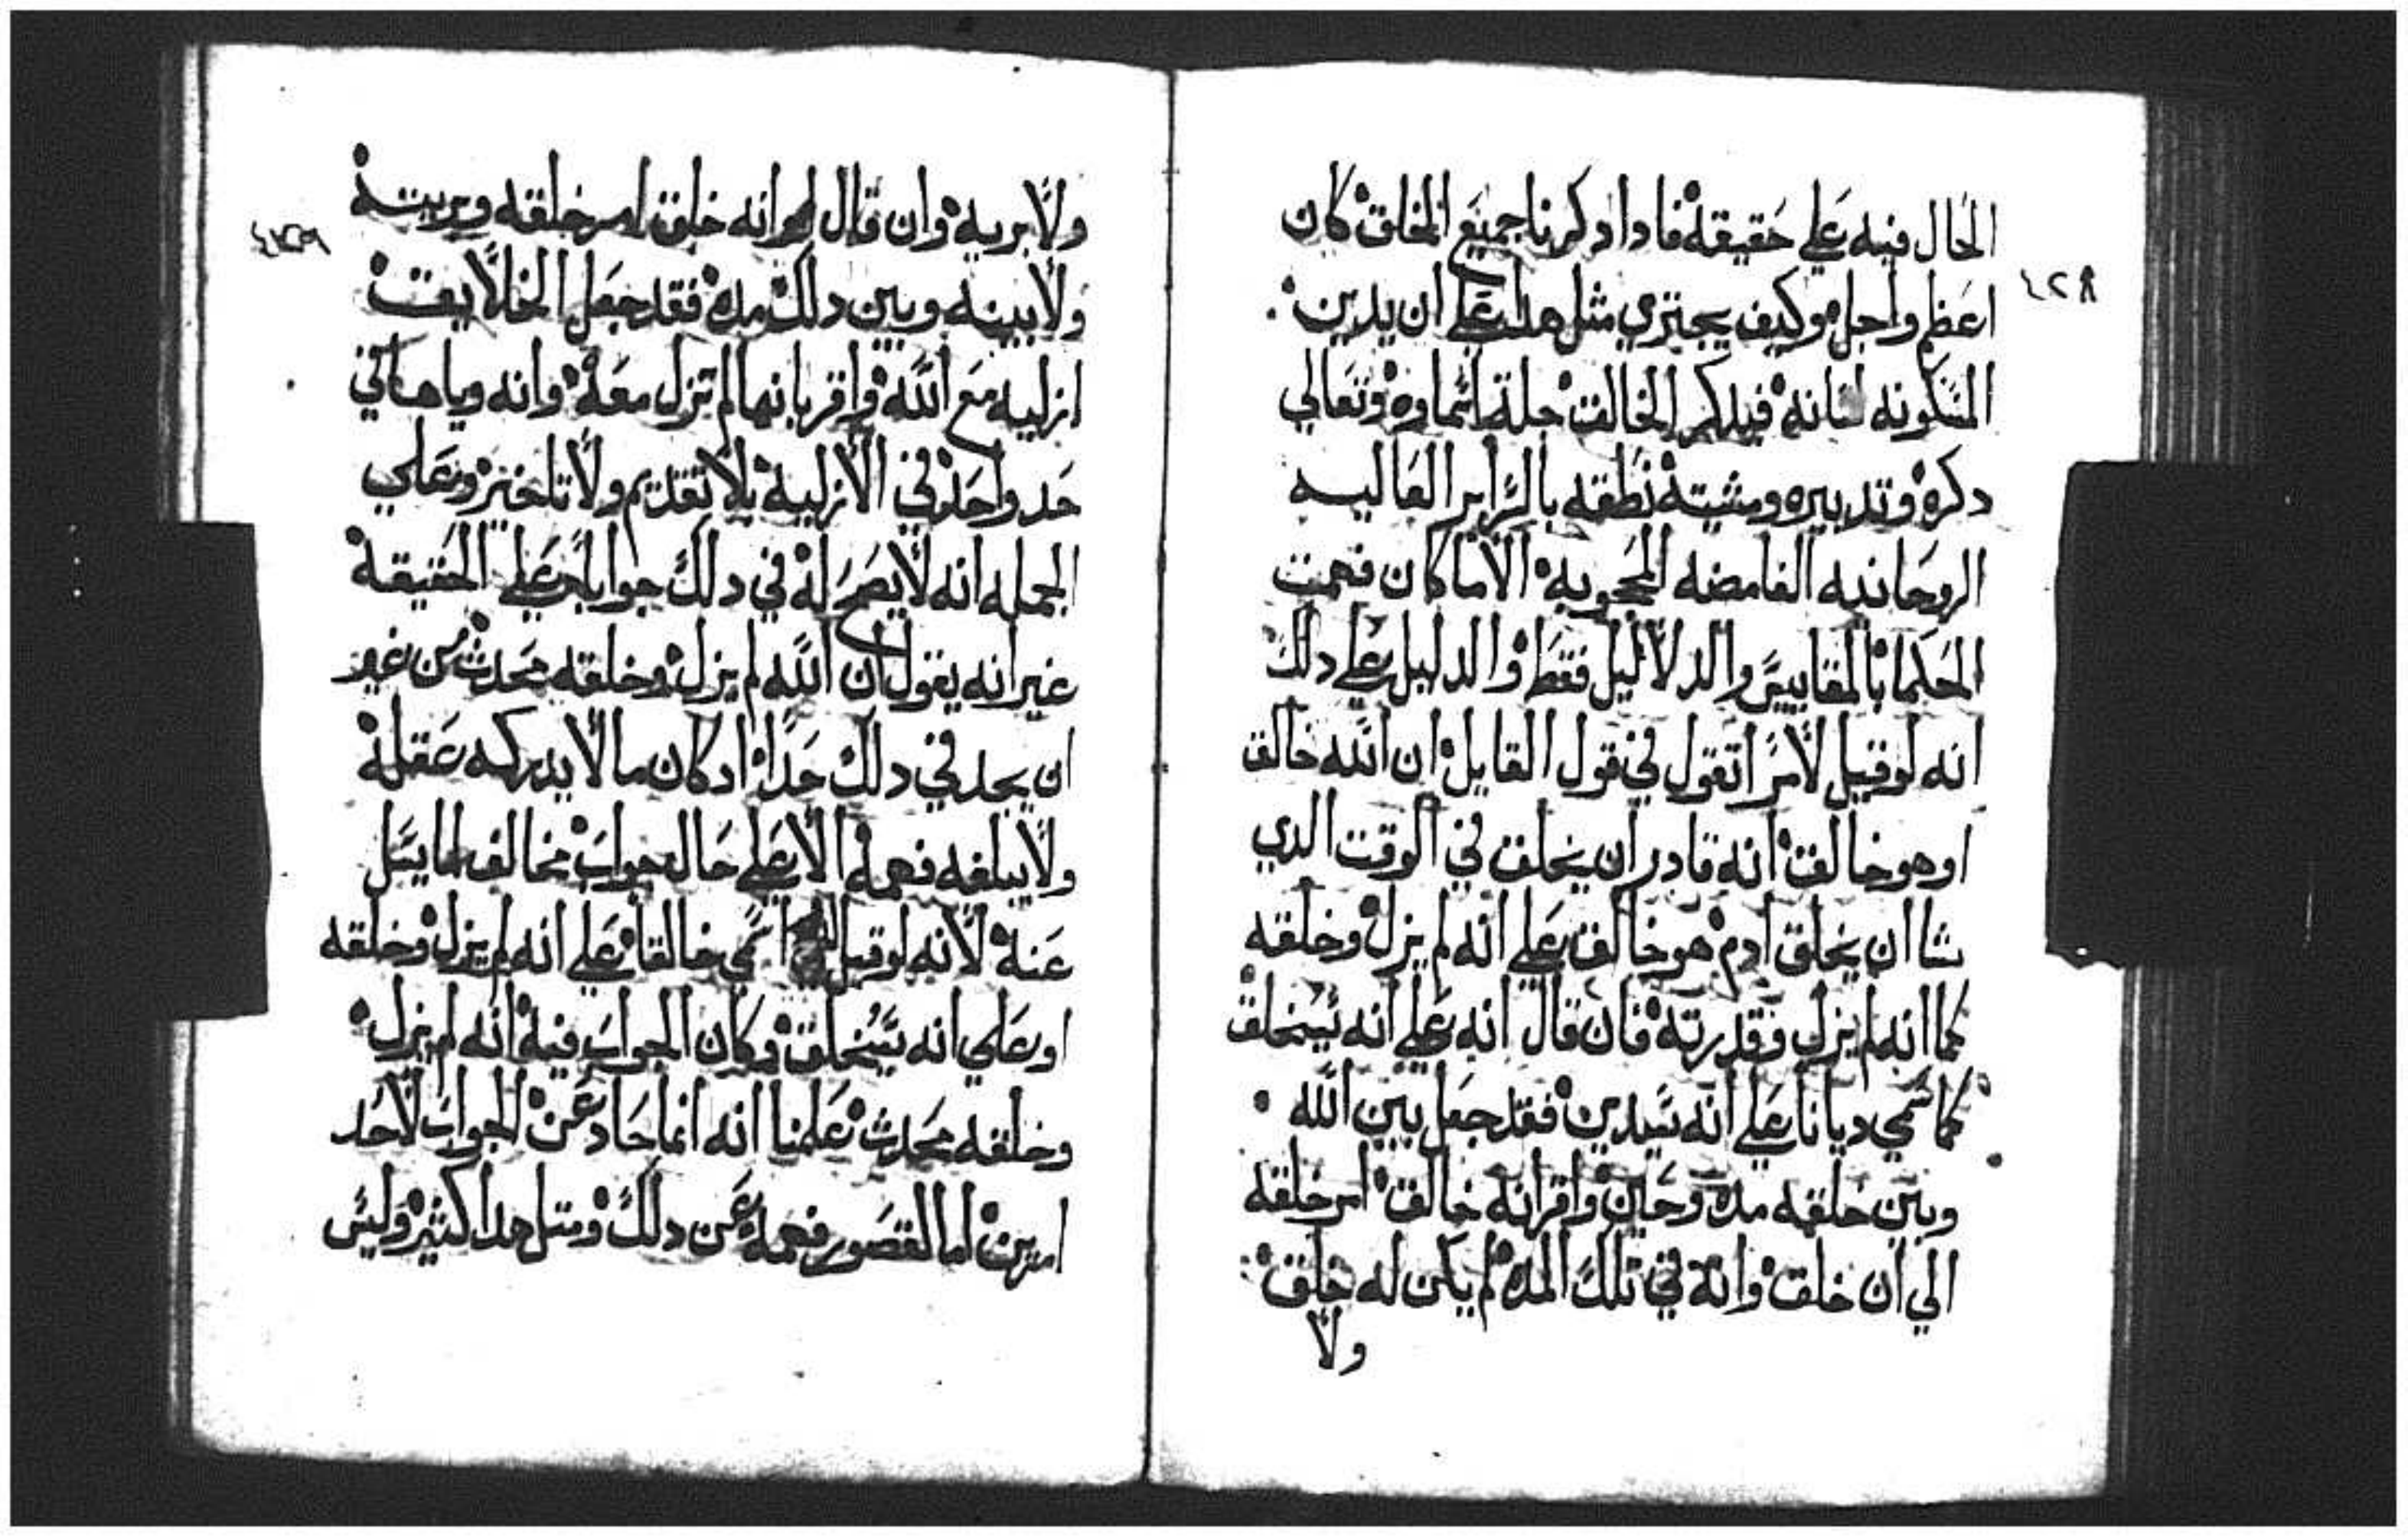 ٤٢٨
الحال فيه علي حقيقة فاداد كرنا جميع الخلق كان
اعظم واجل وكيف يجتري مثل هدا علي ان يدين
المتكونه لسانه فيدكر الخالق جلة اسماوه وتعالي
دكره وتدبيره ومشيتة نطقه بالسراير العاليه
الروحانيه الغامضه المحجوبه الا ما كان فهمت
الحكما بالمقاييس والدلاليل فقط والدليل علي دلك
انه لو قيل لامر اتقول في قول القايل ان الله خالق
او هو خالق انه قادر ان يخلق في الوقت الدي
شا ان يخلق ادم هو خالق علي انه لم يزل وخلقه
كما انه لم يزل وقدرته فان قال انه علي انه سيخلق
كما سمي ديانا علي انه سيدين فقد جعل بين الله
وبين خلقه مده وحين واقر انه خالق امر خلقه
الي ان خلق وانه في تلك المده لم يكن له خلق
ولا
٤٢٩
ولا بريه وان قال انه خلق امر خلقه وبريته
ولا بينه وبين دلك مده فقد جعل الخلايق
ازليه مع الله واقر بانها لم تزل معه وانه وياها في
حد واحد في الازلية بلا تقديم ولا تاخير وعلي
الجمله انه لا يصح له في دلك جوابا علي الحقيقة
غير انه يقول ان الله لم يزل وخلقه محدث من غير
ان يحد في دلك حدا اد كان ما لا يدركه عقله
ولا يبلغه فهمه الا علي حال جواب مخالف لما يسل
عنه لانه لو قيل سمي خالقا علي انه لم يزل وخلقه
او علي انه سيخلق وكان الجواب فيه انه لم يزل
وخلقه محدث علمنا انه انما حاد عن الجواب لاحد
امرين اما لقصور فهمه عن دلك ومتل هدا كثير وليس